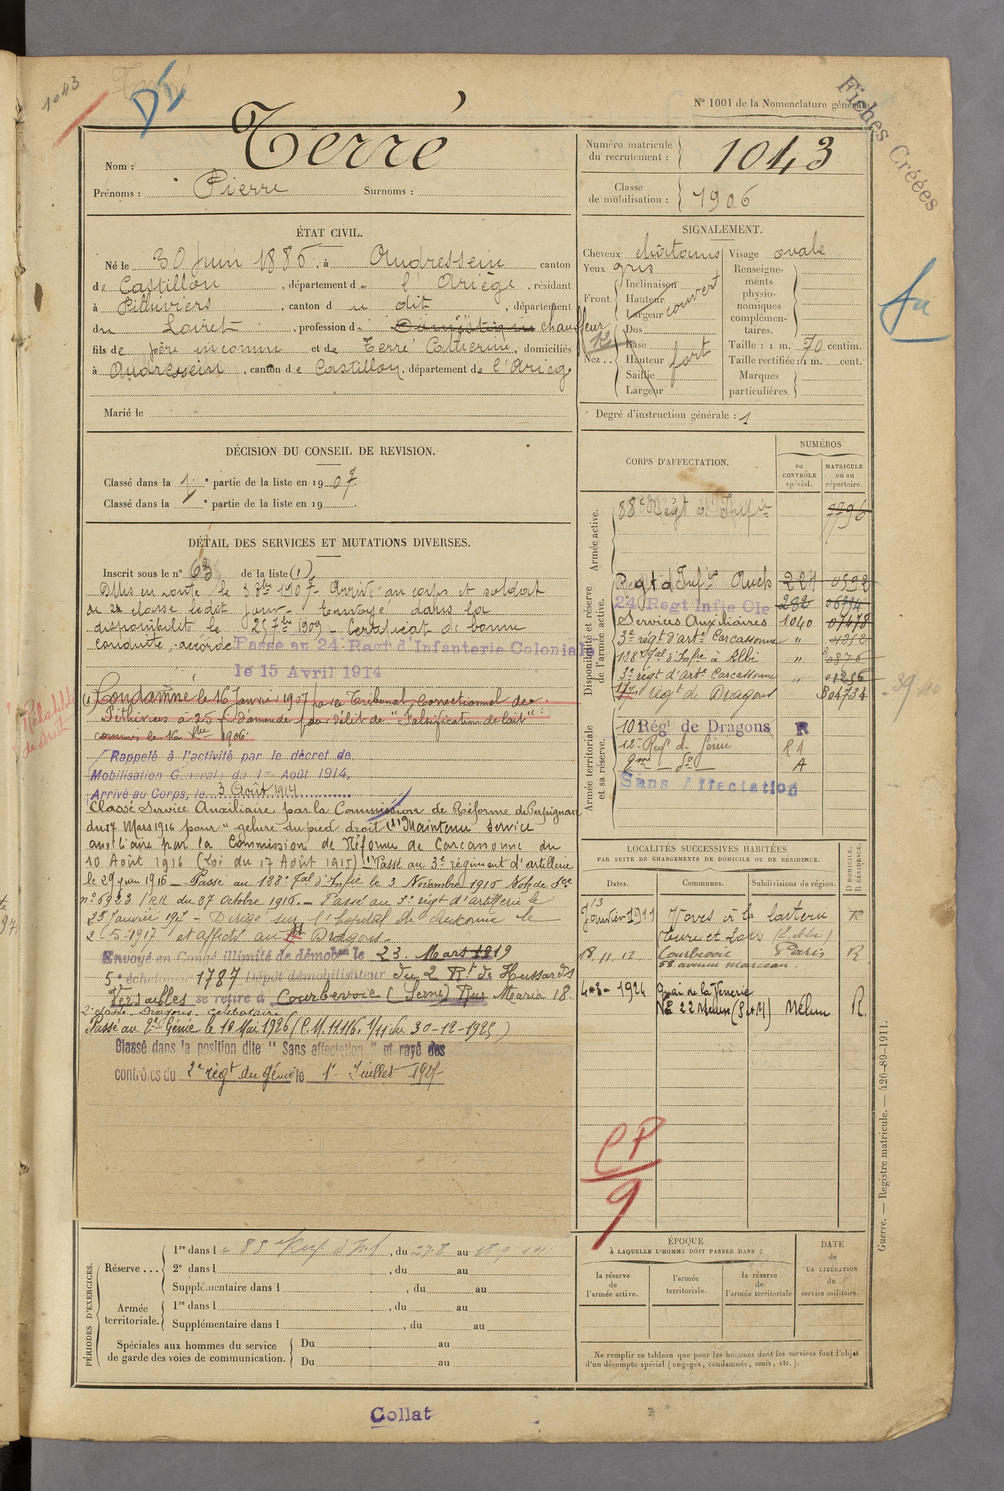 1043
N° 1001 de la Nomenclature générale
Fiches Créées
Nom : Terré
Prénoms : Pierre Surnoms :
Numéro matricule du recrutement : 1043
Classe de mobilisation : 1906
ÉTAT CIVIL.
Né le 30 Juin 1886, à Audressein canton
de Castillon, département de l'Ariège, résidant
à Pithiviers, canton du dit, département
du Loiret, profession de Domestique chauffeur
fils de père inconnu et de Terré Catherine, domiciliés
à Audressein, canton de Castillon, département de l'Ariège
Marié le
SIGNALEMENT.
Cheveux châtains Visage ovale
Yeux gris
Front. Inclinaison
Hauteur couvert
Largeur
Nez. Dos
Base
Hauteur fort
Saillie
Largeur
Renseignements physionomiques complémentaires.
Taille : 1 m. 70 centim.
Taille rectifiée : 1 m. cent.
Marques particulières.
Degré d'instruction générale : 1
DÉCISION DU CONSEIL DE REVISION.
Classé dans la 1e partie de la liste en 1907.
Classé dans la e partie de la liste en 19 .
DÉTAIL DES SERVICES ET MUTATIONS DIVERSES.
Inscrit sous le n° 63 de la liste (1)
Mis en route le 8 8bre 1907 Arrivé au corps et soldat
de 2e classe ledit jour. Envoyé dans la
disponibilité le 25 7bre 1909 - Certificat de bonne
conduite, accordé. Passé au 24 Regt d'Infanterie Coloniale
le 15 Avril 1914
(1) Condamné le 16 Janvier 1907 par le Tribunal Correctionnel de
Pithiviers à 25f d'amende pour délit de "Falsification de lait"
commis le 16 Xbre 1906
Réhabilité de droit
Rappelé à l'activité par le décret de
Mobilisation Générale du 1er Août 1914,
Arrivé au Corps, le 3 Août 1914
Classé Service Auxiliaire par la Commission de Réforme de Perpignan
du 27 Mars 1916 pour "gelure du pied droit" (1) Maintenu service
auxiliaire par la Commission de Réforme de Carcassonne du
10 Août 1916 (Loi du 17 Août 1915) (1) Passé au 3e régiment d'artillerie
le 29 juin 1916 - Passé au 138e Tal d'Infie le 3 Novembre 1916 Note de Sce
n° 6923 /RR du 27 octobre 1916. - Passé au 3e régt d'artillerie le
25 Janvier 1917 - Dirigé sur l'
2/5/1917 et affecté au Dragons.
Envoyé en Congé illimité de démobon le 23 Mars 1919
5e échelon n° 1787 Dépôt démobilisateur du 2e Rt de Hussards
Versailles se retire à Courbevoie (Seine) Rue Maria 18
2e classe Dragons. Célibataire
Passé au 2e Génie le 10 Mai 1926 (C.M. 11116. 1/11 du 30-12-1925)
Classé dans la position dite "Sans affectation" et rayé des
contrôles du 2e régt du génie le 1er Juillet 1927
CORPS D'AFFECTATION.
NUMÉROS
au CONTRÔLE spécial.
MATRICULE ou au répertoire.
Armée active.
88e Régt d'Infie 7796
Disponibilité et réserve de l'armée active.
Regt d'Infie Auch 227 0592
24 Regt Infie Cle 282
Services Auxiliaires 1040
3e régt d'arte Carcassonne "
138e Tal d'Infie à Albi " 0876
3e régt d'arte Carcassonne " 01256
régt de Dragons 04734
Armée territoriale et sa réserve.
10 Rég. de Dragons R
12e Régt de Génie RA
2me - do - A
Sans affectation
LOCALITÉS SUCCESSIVES HABITÉES
PAR SUITE DE CHANGEMENTS DE DOMICILE OU DE RÉSIDENCE.
Dates. Communes. Subdivisions de région.
D DOMICILE. R RÉSIDENCE.
13 Janvier 1911 Voves
Eure et Loir R
18.11.12 Courbevoie Paris R
58 avenue Marceau
4-8-1924 Quai de la Vénerie
N° 22 Melun (S et M) Melun R.
CP
9
PÉRIODES D'EXERCICES.
Réserve... 1re dans le 88 Reg d'Inf, du 27.8 au
2e dans l , du au
Supplémentaire dans l , du au
Armée territoriale. 1re dans l , du au
Supplémentaire dans l , du au
Spéciales aux hommes du service de garde des voies de communication. Du au
Du au
ÉPOQUE
À LAQUELLE L'HOMME DOIT PASSER DANS :
la réserve de l'armée active.
l'armée territoriale.
la réserve de l'armée territoriale
DATE DE LA LIBÉRATION du service militaire.
Ne remplir ce tableau que pour les hommes dont les services font l'objet
d'un décompte spécial (engagés, condamnés, omis, etc.).
Guerre. — Registre matricule. — 426-89-1911.
Collat